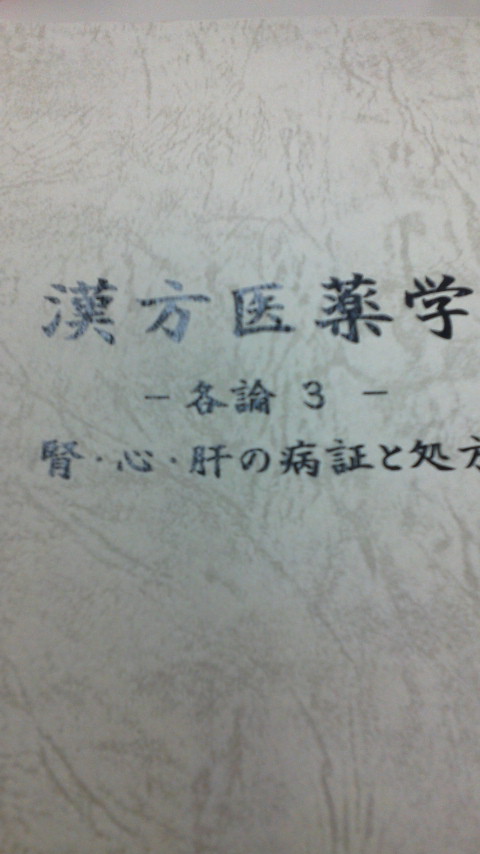 漢方医薬学
－各論 3 －
腎・心・肝の病証と処方